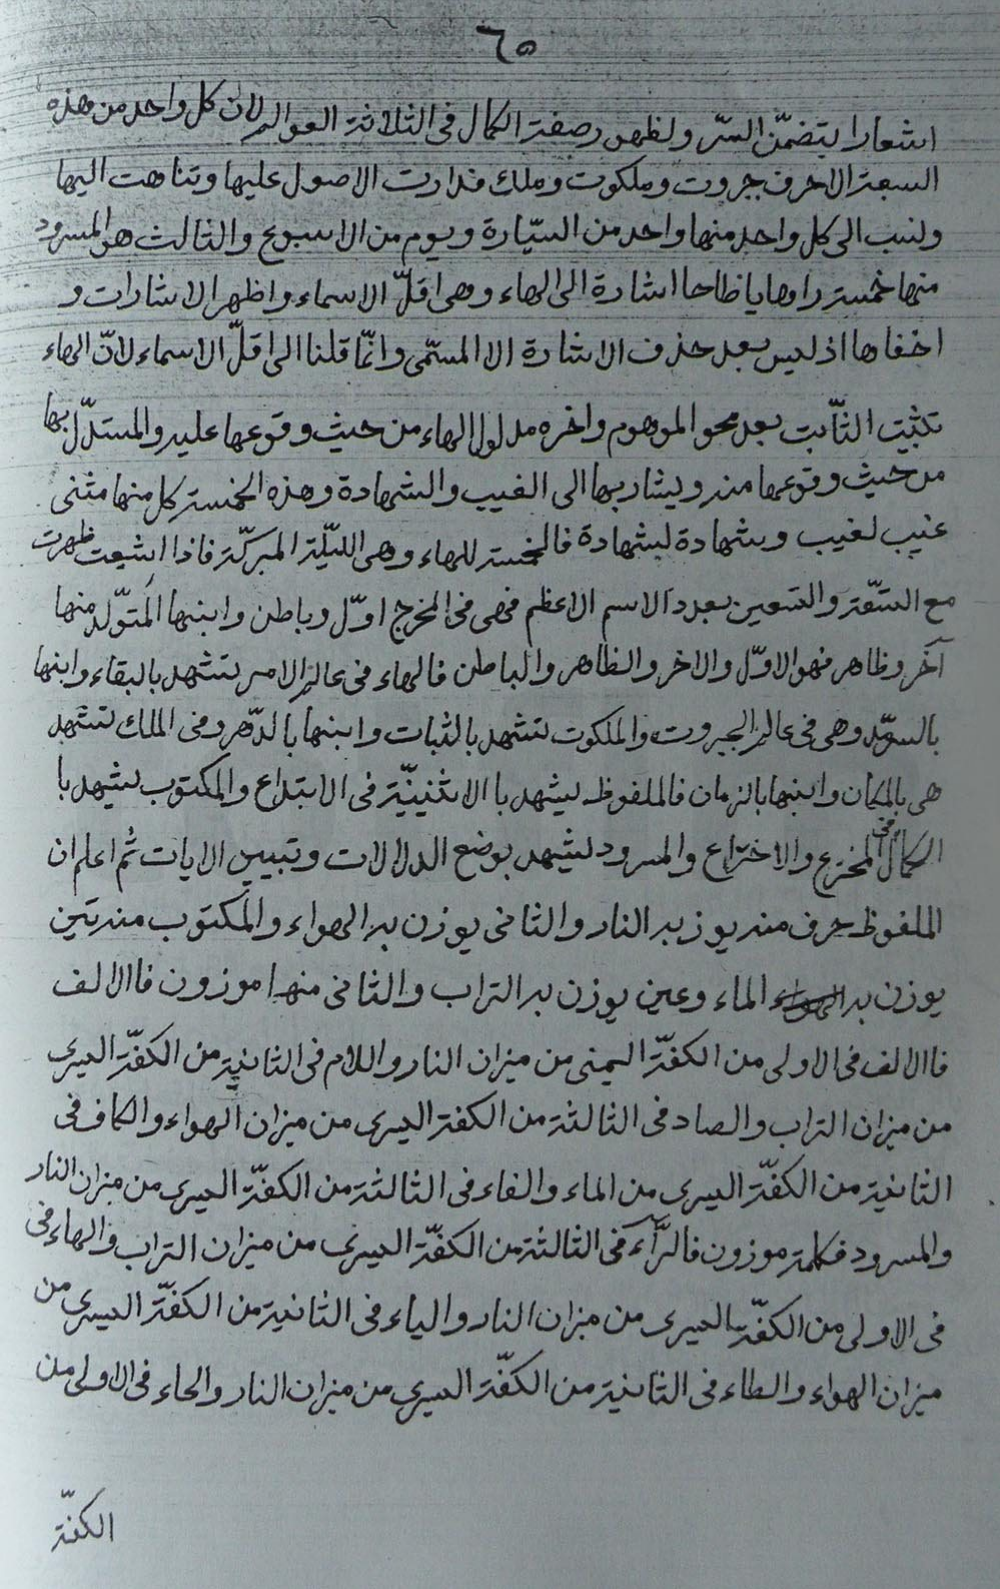 ٦٥
اشعارا بتضمّن السرّ ولظهور صفة الكمال فى الثلاثة العوالم لان كل واحد من هذه
السبعة الاحرف جبروت وملكوت وملك فدارت الاصول عليها وتناهت اليها
ونسب الى كل واحد منها واحد من السيّارة ويوم من الاسبوع والثالث هو المسرود
منها خمسة را وها يا طا حا اشارة الى الهاء وهى اقلّ الاسماء واظهر الاشارات و
اخفاها اذ ليس بعد حذف الاشارة الا المسمّى وانّما قلنا الى اقلّ الاسماء لانّ الهاء
تثبيت الثّابت بعد محو الموهوم واخره مدلول الهاء من حيث وقوعها عليه والمستدلّ بها
من حيث وقوعها منه ويشار بها الى الغيب والشهادة وهذه الخمسة كل منها مثنى
غيب لغيب وشهادة لشهادة فالخمسة للهاء وهى الليّلة المبركّة فاذا اشبعت ظهرت
مع الستّة والتسعين بعدد الاسم الاعظم فهى فى المخرج اوّل وباطن وابنها المتولّد منها
آخر وظاهر فهو الاوّل والاخر والظاهر والباطن فالهاء فى عالم الامر تشهد بالبقاء وابنها
بالسرمد وهى فى عالم الجبروت والملكوت تشهد بالثبات وابنها بالدّهر وفى الملك تشهد
هى بالمكان وابنها بالزمان فالملفوظ يشهد با الاثنينيّة فى الابتداع والمكتوب يشهد با
الكمال فى المخترع والاختراع والمسرود يشهد بوضع الدلالات وتبيين الايات ثم اعلم ان
الملفوظ حرف منه يوزن به النار والثانى يوزن به الهواء والمكتوب منه تين
يوزن به الماء وعين يوزن به التراب والثانى منها موزون فاالالف
فاالالف فى الاولى من الكفّة اليمنى من ميزان النار واللام فى الثانية من الكفّة اليسرى
من ميزان التراب والصاد فى الثالثة من الكفة اليسرى من ميزان الهواء والكاف فى
الثانية من الكفّة اليسرى من الماء والفاء فى الثالثة من الكفّة اليسرى من ميزان النار
والمسرود فكلمة موزون فالرّاء فى الثالثة من الكفّة اليسرى من ميزان التراب والهاء فى
فى الاولى من الكفّة اليسرى من ميزان النار والياء فى الثانية من الكفّة اليسرى من
ميزان الهواء والطاء فى الثانية من الكفّة اليسرى من ميزان النار والحاء فى الاولى من
الكفّة